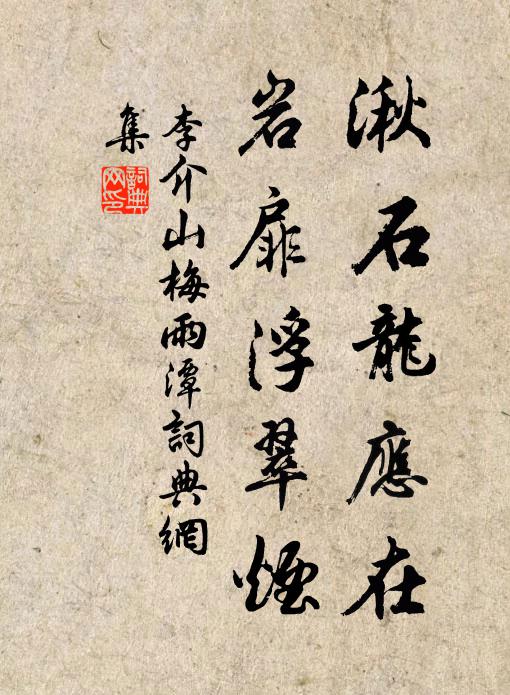 湫石龍應在
岩扉浮翠煙
李介山梅雨潭詞典網
集
詞典
网印